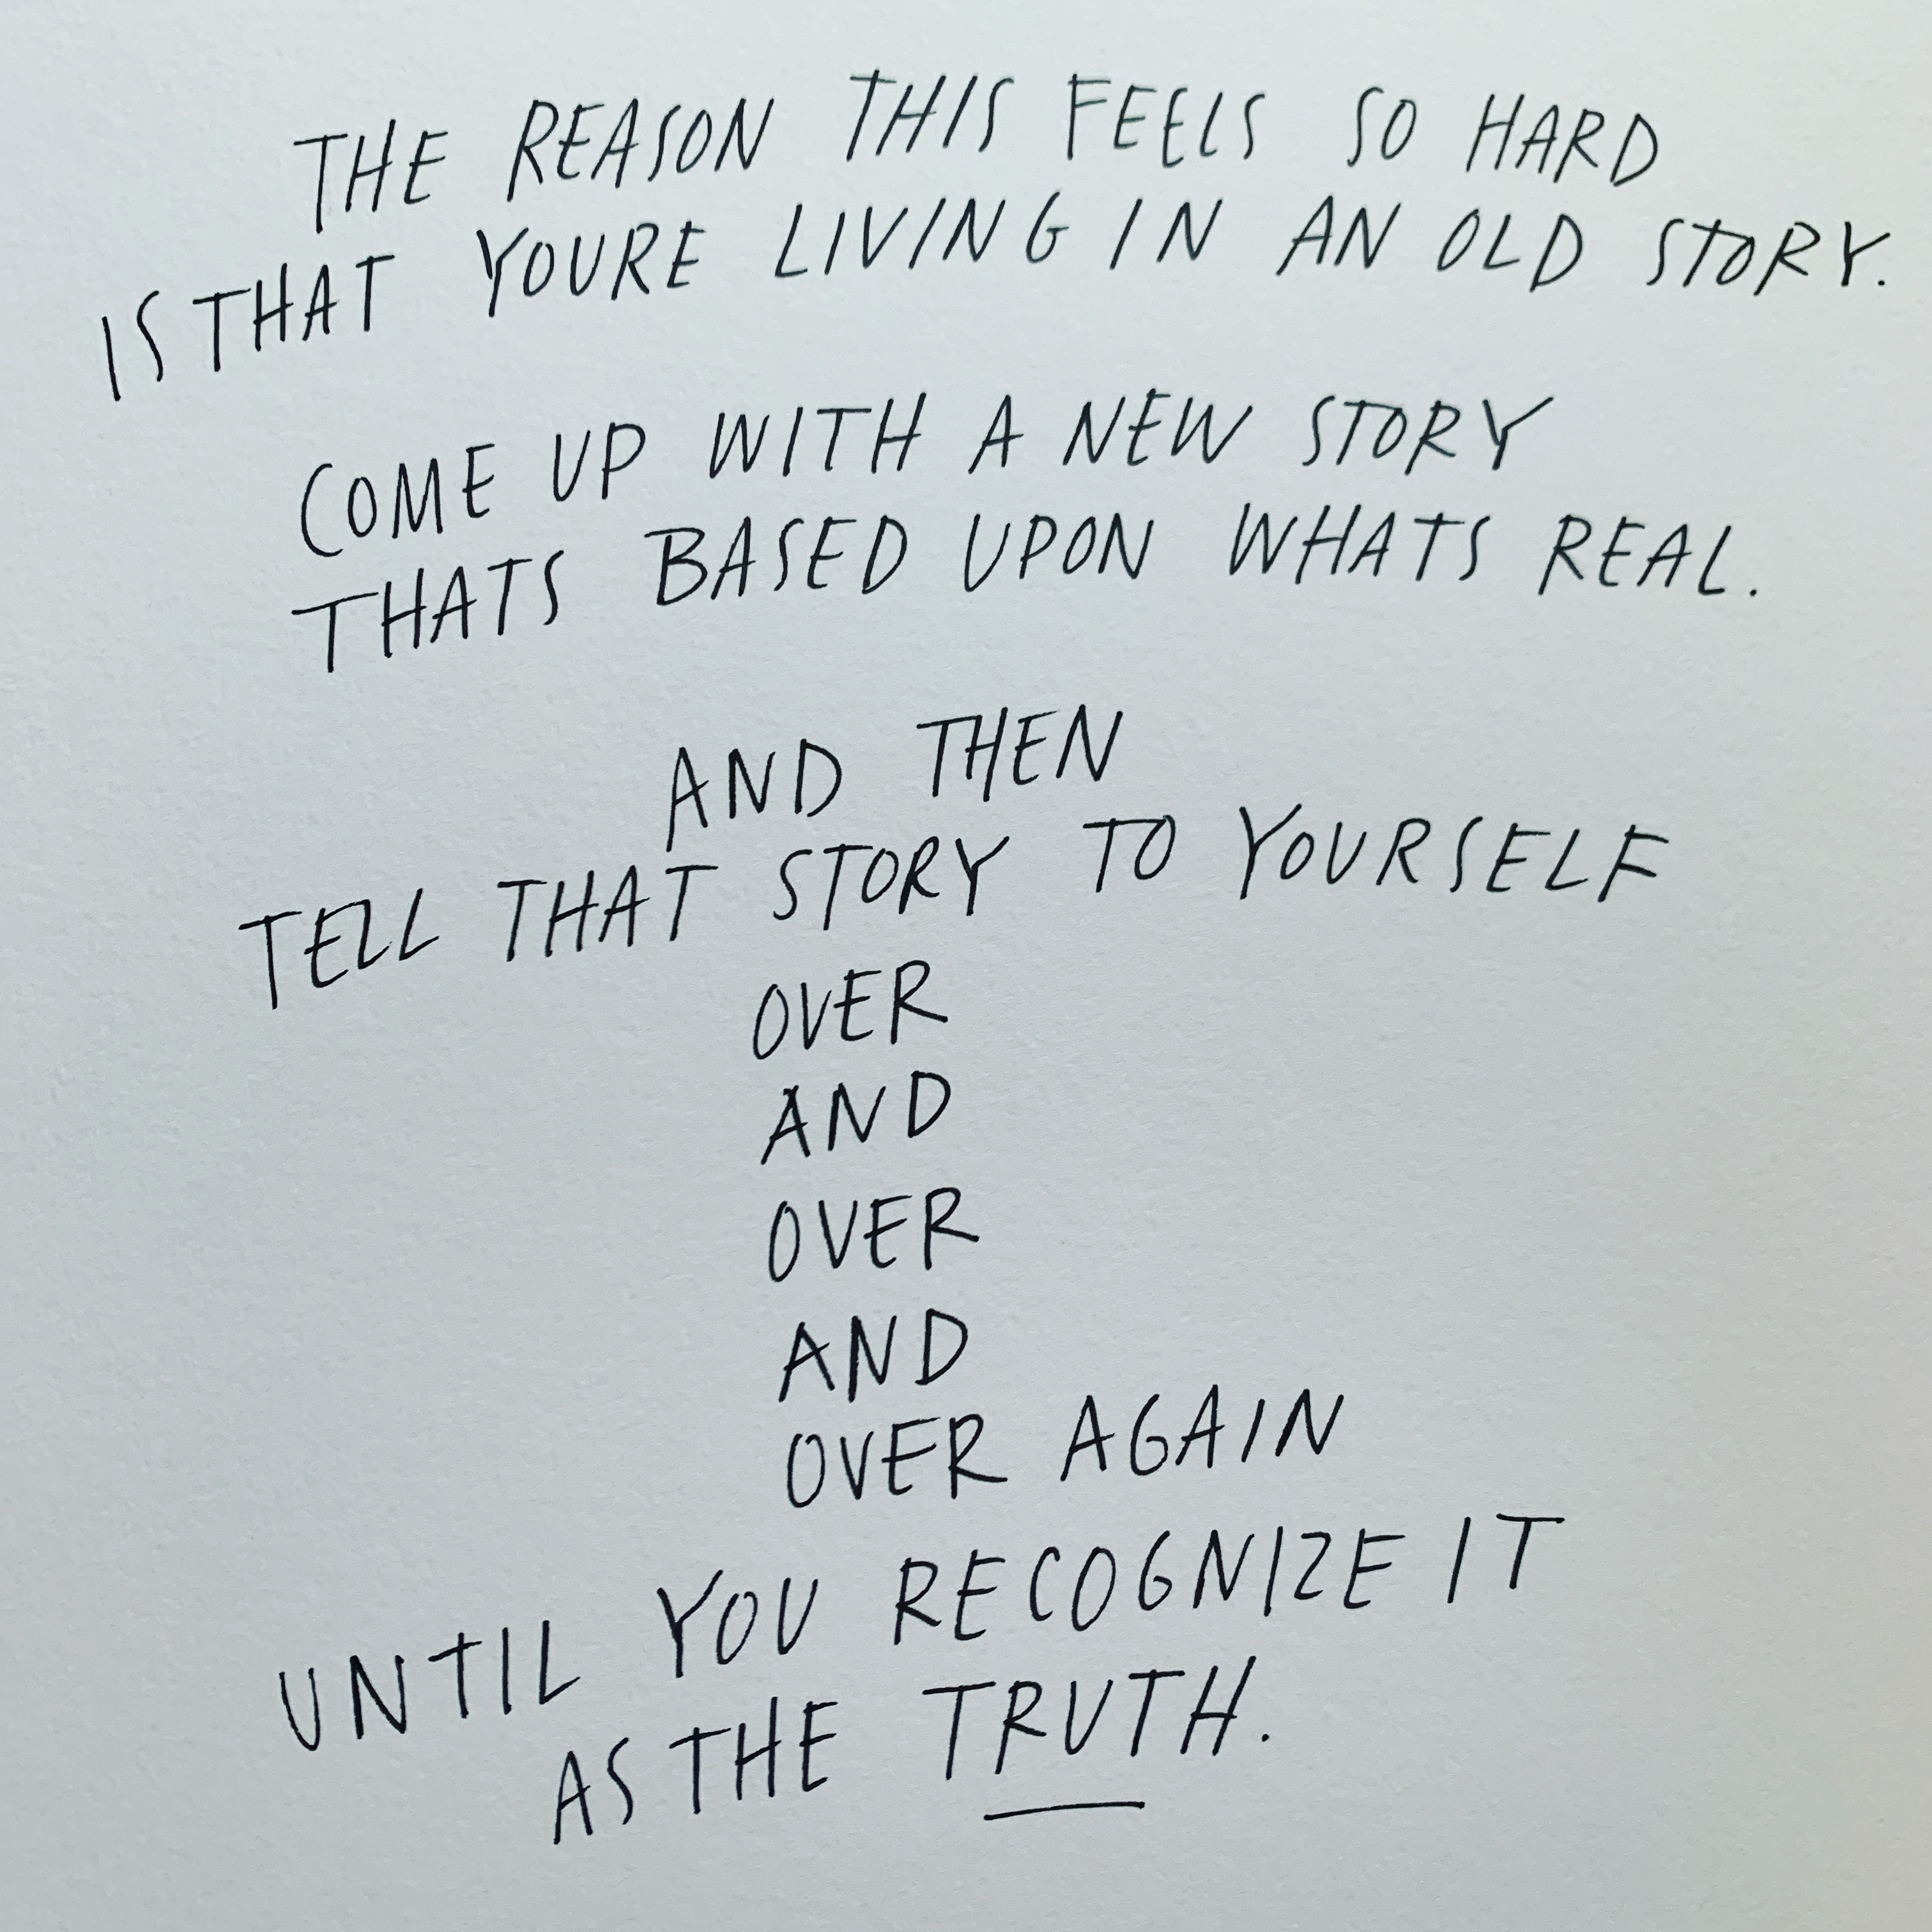 THE REASON THIS FEELS SO HARD
IS THAT YOURE LIVING IN AN OLD STORY.
COME UP WITH A NEW STORY
THATS BASED UPON WHATS REAL.
AND THEN
TELL THAT STORY TO YOURSELF
OVER
AND
OVER
AND
OVER AGAIN
UNTIL YOU RECOGNIZE IT
AS THE TRUTH.